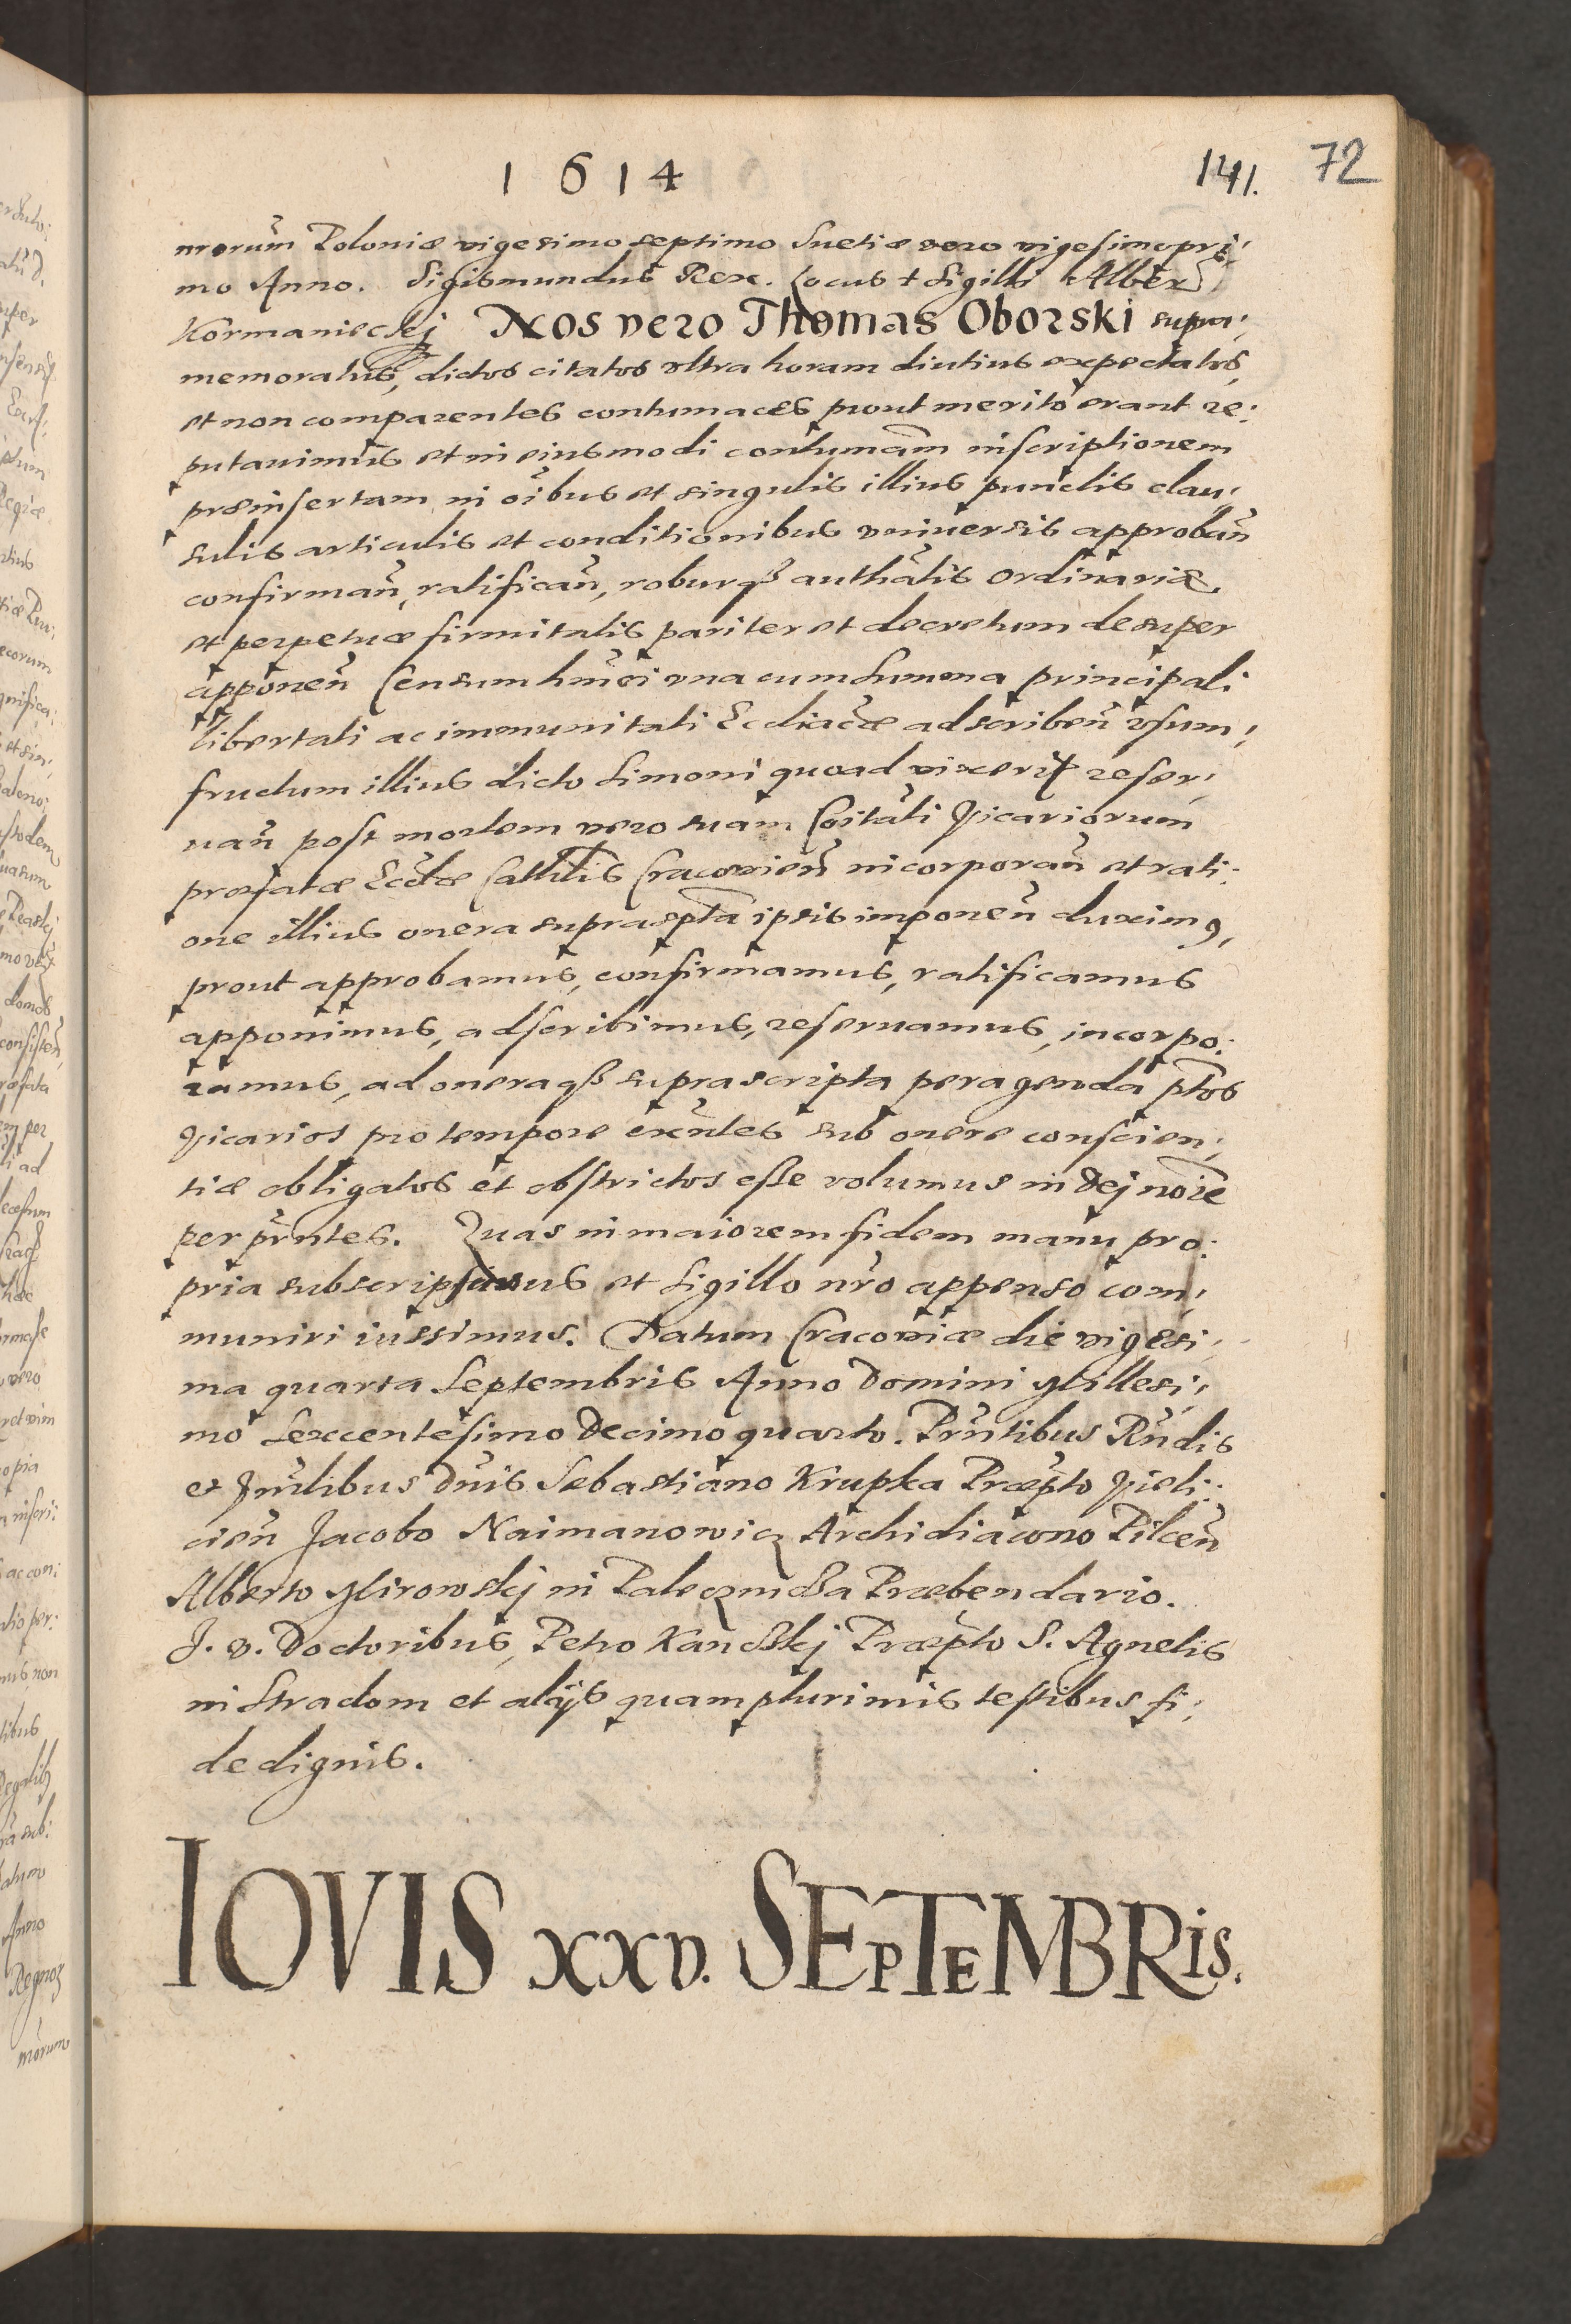 1614
141.
72
nrorum̃ Poloniæ vigesimo septimo Suetiæ vero vigesimo pri:
mo Anno. Sigismundus Rex. Locus + Sigilli Albert
Kormanieckj Nos vero Thomas Oborski supra:
memoratus, dictos citatos vltra horam diutius expectatos,
et non comparentes contumaces prout merito erant re:
putauimus et in eiusmodi contumam̃ inscriptionem
præinsertam in oĩbus et singulis illius punctis clau:
sulis articulis et conditionibus vniuersis approbañ
confirmañ, ratificañ, roburqȝ authãtis ordinariæ
et perpetuæ firmitatis pariter et decretum desuper
apponeñ Censum hmõi vna cum Summa principali
libertati ac immunitati Eccliacæ adscribeñ vsum:
fructum illius dicto Simoni quoad vixerit reser:
uañ post mortem vero suam Cõitati Vicariorum
præfatæ Ecclæ Cathlis Cracovieñ incorporañ et rati:
one illius onera suprasptã ipsis imponeñ duximꝰ,
prout approbamus, confirmamus, ratificamus
apponimus, adscribimus, reseruamus, incorpo:
ramus, ad oneraqȝ suprascripta peragenda ptõs
Vicarios pro tempore exñtes sub onere conscien:
tiæ obligatos et obstrictos esse volumus in Dej noĩe
per pñtes. Quas in maiorem fidem manu pro:
pria subscripsimus et Sigillo nr̃o appenso com:
muniri iussimus. Datum Cracoviæ die vigesi:
ma quarta Septembris Anno Domini Millesi:
mo Sexcentesimo Decimo quarto. Prñtibus Rñdis
et Vñlibus Dnĩs Sebastiano Krupka Præpto Vieli:
cieñ Jacobo Naimanowicz Archidiacono Pilceñ
Alberto Mirowskj in Paleczni̇cza Præbendario.
J. V. Doctoribus, Petro Kanckj Præpto S. Agnetis
in Stradom et alijs quamplurimis testibus fi:
de dignis.
IOVIS XXV. SEPTEMBRIS.